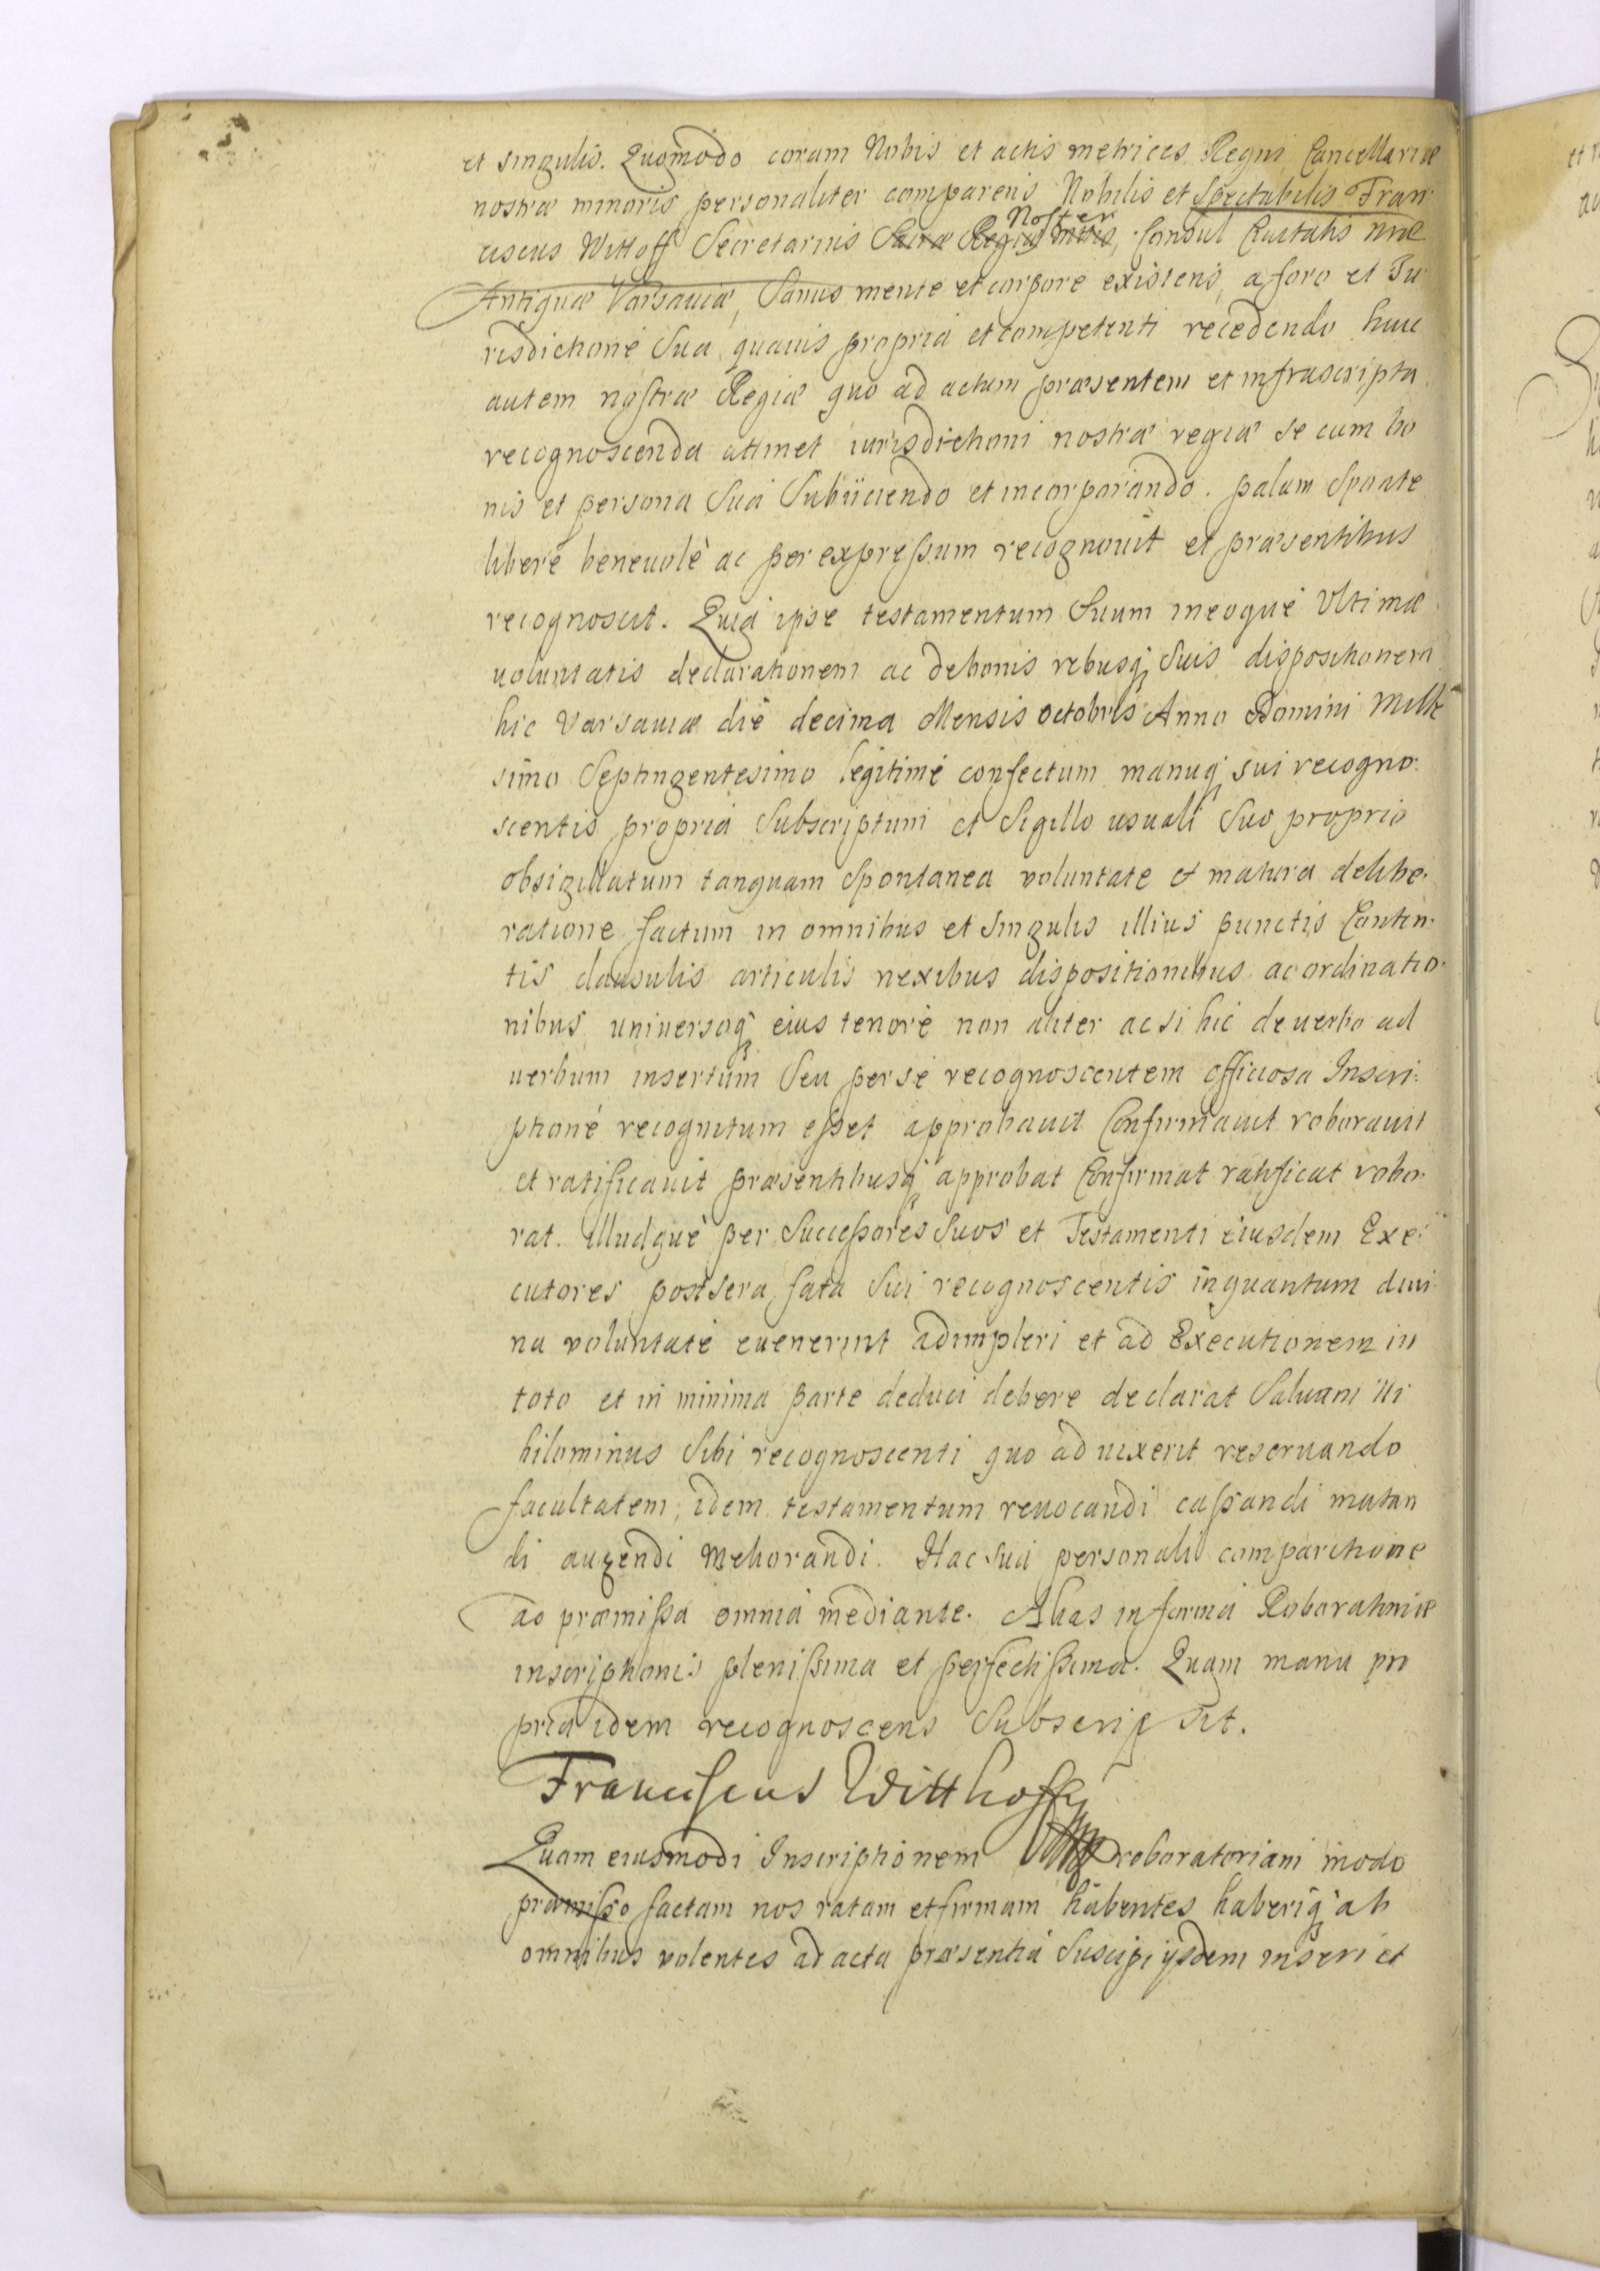 et singulis. Quomodo coram Nobis et actis metrices Regni Cancellariæ
nostræ minoris personaliter comparens Nobilis et Spectabilis Fran
ciscus Wittoff Secretarius Sacræ Regiæ Mtis Noster, Consul Ciuitatis nræ
Antiquæ Varsauiæ, Sanus mente et corpore existens, a foro et Ju
risdictione Sua quauis propria et competenti recedendo huic
autem nostræ Regiæ quo ad actum præsentem et infrascripta
recognoscenda attinet iurisdictioni nostræ regiæ se cum bo
nis et persona Sua Subiiciendo et incorporando. palam Sponte
liberè beneuolè ac per expreßum recognouit et præsentibus
recognoscit. Quia ipse testamentum Suum ineoquè Vltimæ
uoluntatis declarationem ac de bonis rebusq; Suis dispositionem
hic Varsauiæ die decima Mensis octobris Anno Domini Mille
simo Septingentesimo legitimè confectum manuq; sui recogno:
scentis propria Subscriptum et Sigillo usuali Suo proprio
obsigillatum tanquam Spontanea voluntate et matura delibe.
ratione factum in omnibus et Singulis illius punctis Conten.
tis clausulis articulis nexibus dispositionibus ac ordinatio.
nibus universoq; eius tenore non aliter ac si hic de uerbo ad
uerbum insertum Seu per se recognoscentem officiosa Inscri:
ptione recognitum eßet approbauit Confirmauit roborauit
et ratificauit præsentibusq; approbat Confirmat ratificat robo.
rat. illudquè per Succeßores Suos et Testamenti eiusdem Exe:
cutores post sera fata Sui recognoscentis inquantum diui
na voluntate euenerint adimpleri et ad Executionem in
toto et in minima parte deduci debere declarat Saluam ni
hilominus Sibi recognoscenti quo ad uixerit reseruando
facultatem, idem testamentum reuocandi caßandi mutan
di augendi Meliorandi. Hac sua personali comparitione
ad præmißa omnia mediante. Alias in forma Roborationis
inscriptionis pleni‎ßima et perfectißima. Quam manu pro
pria idem recognoscens Subscripsit.
Franciscus Witthoff
Quam eiusmodi Inscriptionem roboratoriam modo
præmißo factam nos ratam et firmam habentes haberiq; ab
omnibus volentes ad acta præsentia Suscipi ijsdem inseri et